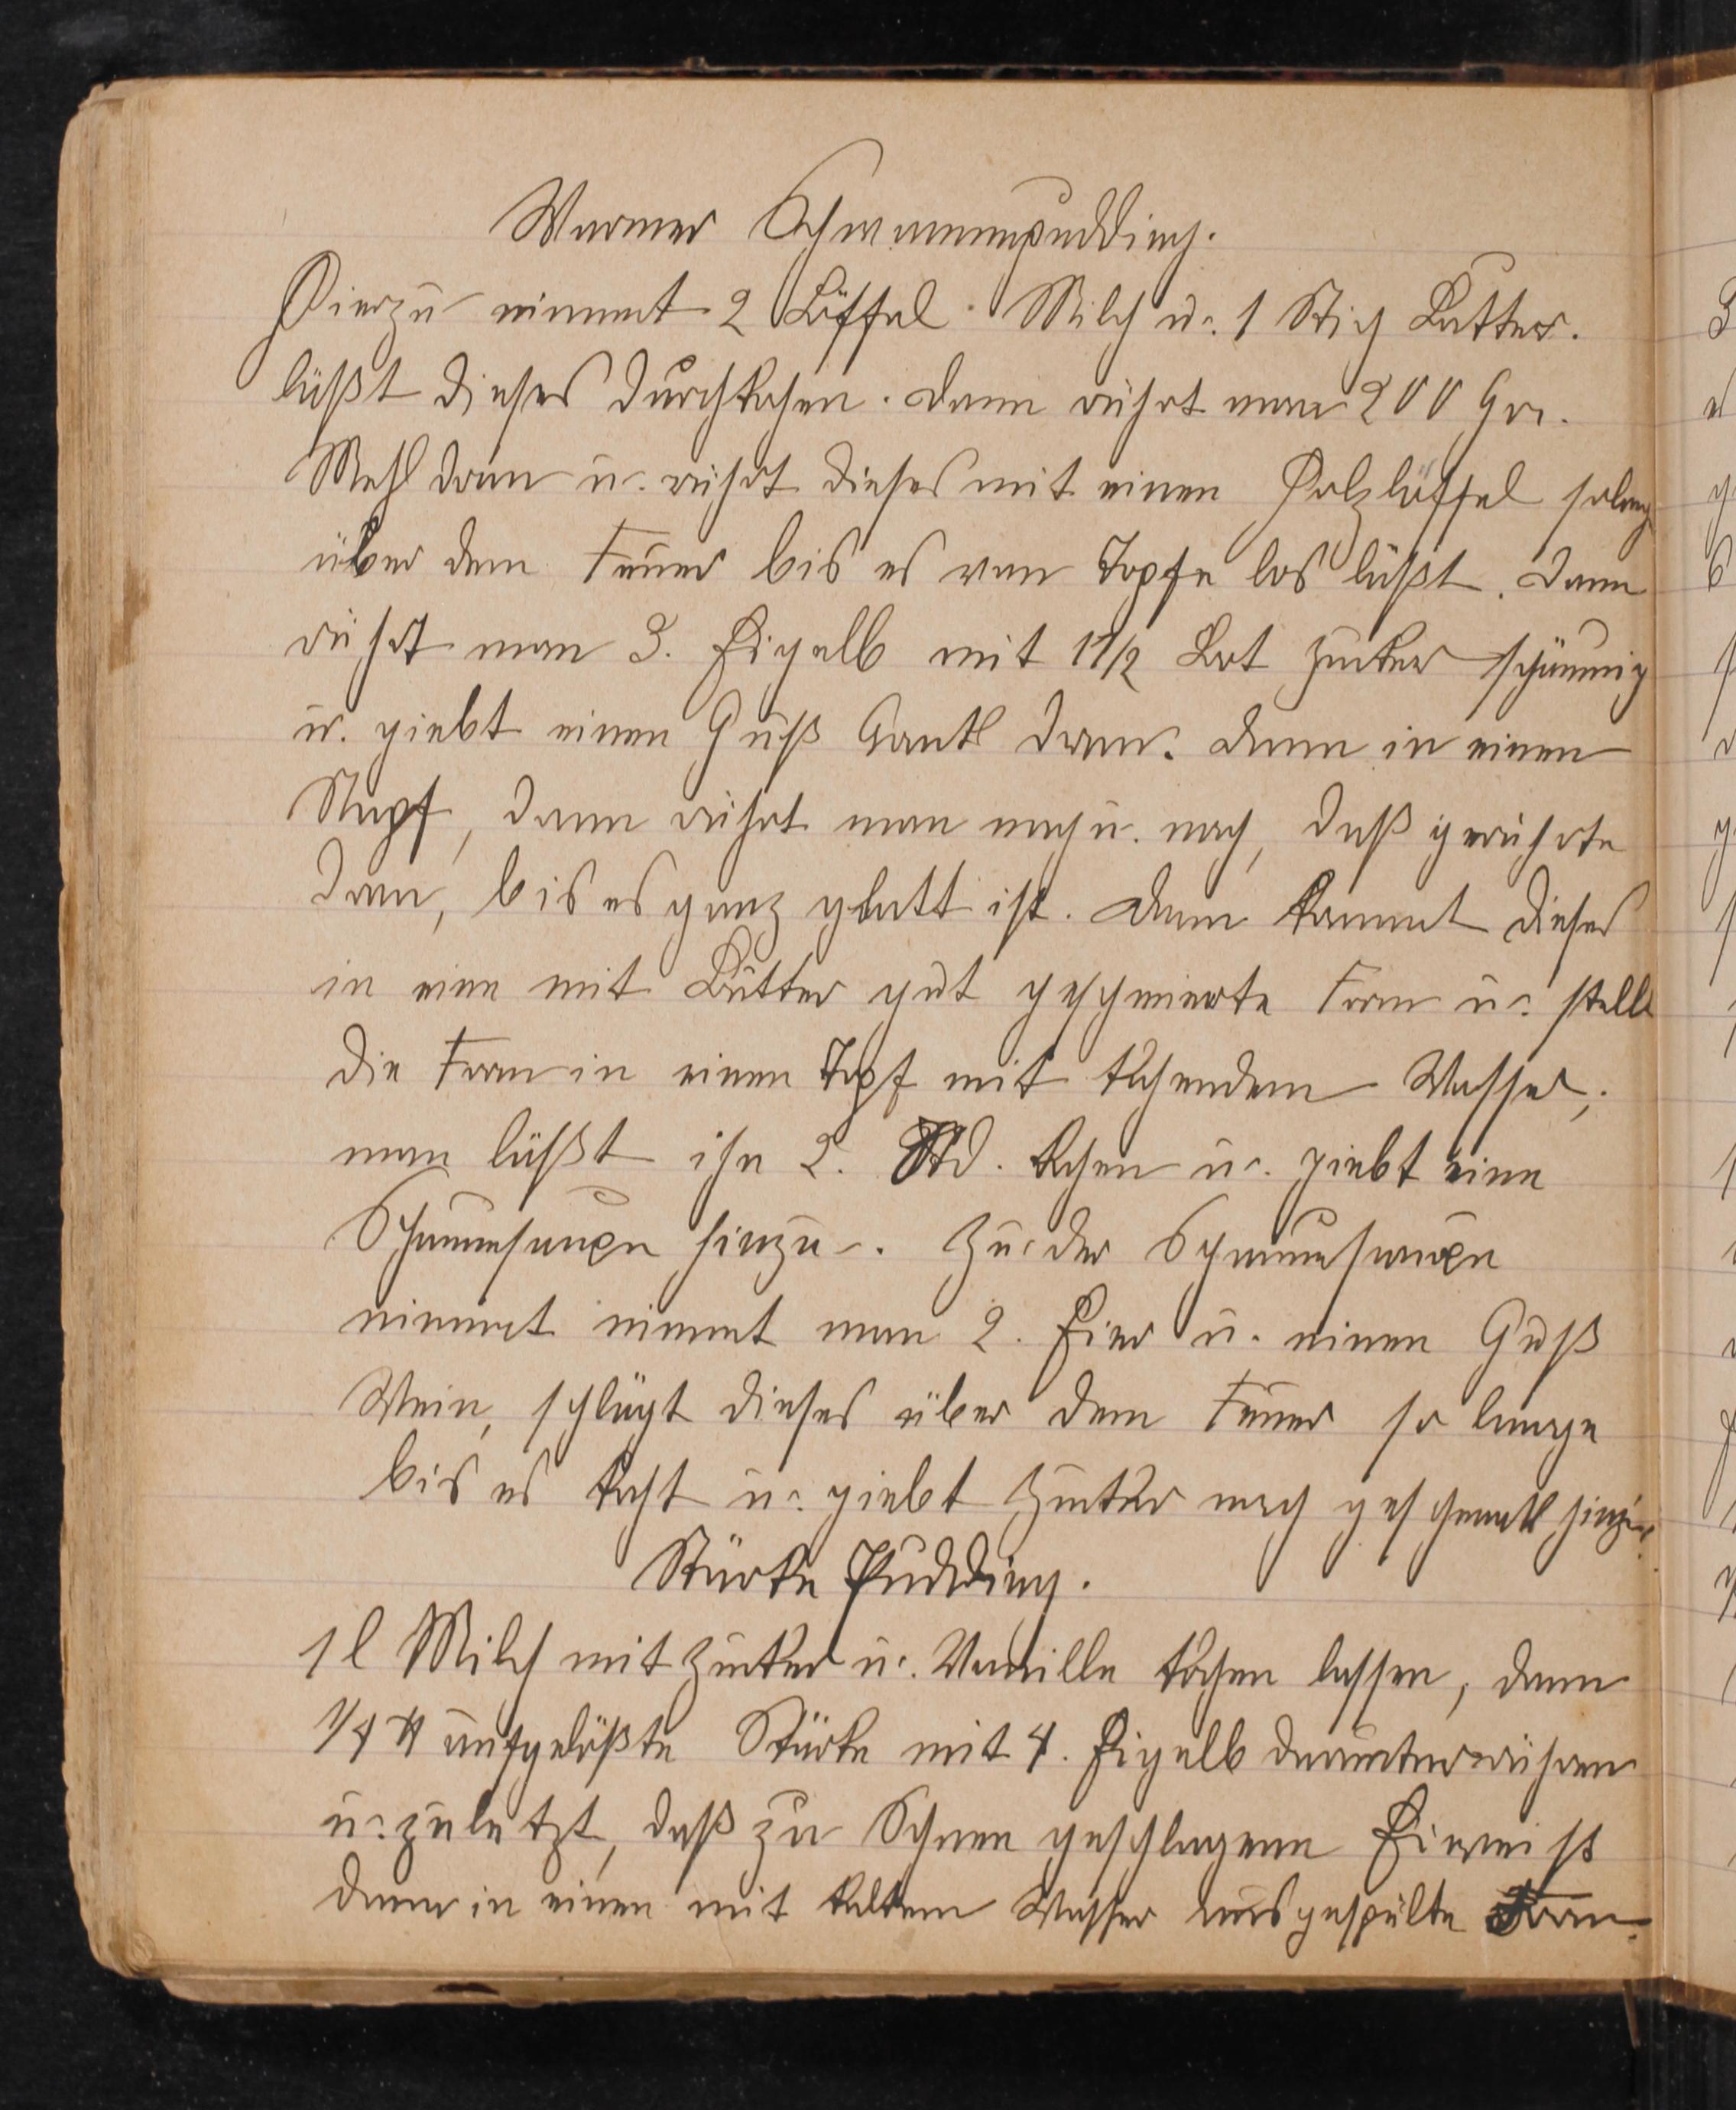 Warmer Schwammpudding.
Hierzu nimmt 2 Löffel Milch u. 1 Stich Butter.
läßt dieses durchkochen. dann rührt man 200 Gr.
Mehl dran u. rührt dieses mit einen Holzlöffel solang
über dem Feuer bis es vom Topfe los läßt. dann
rührt man 3. Eigelb mit 1 1/2 Lot Zucker schäumig
u. giebt einen Guß dran. dann in einen
Napf, dann rührt man nach u. nach, daß gerührte
dran, bis es ganz glatt ist. dann kommt dieses
in eine mit Butter gut geschmierte Form u. stellt
die Form in einen Topf mit kochendem Wasser,
man läßt ihn 2. Std. kochen u. giebt eine
Schaumsauce hinzu. Zu der Schaumsauce
nimmt nimmt man 2. Eier u. einen Guß
Wein, schlägt dieses über dem Feuer so lange
bis es kocht u. giebt Zucker nach geschmack hinzu.
Stärke Pudding.
1 l Milch mit Zucker u. Vanille kochen lassen, dann
1/4 ℔ aufgelößte Stärke mit 4. Eigelb darunterrühren
u. zuletzt, daß zu Schnee geschlagene Eiweist
dann in einen mit kaltem Wasser ausgespülte Form.